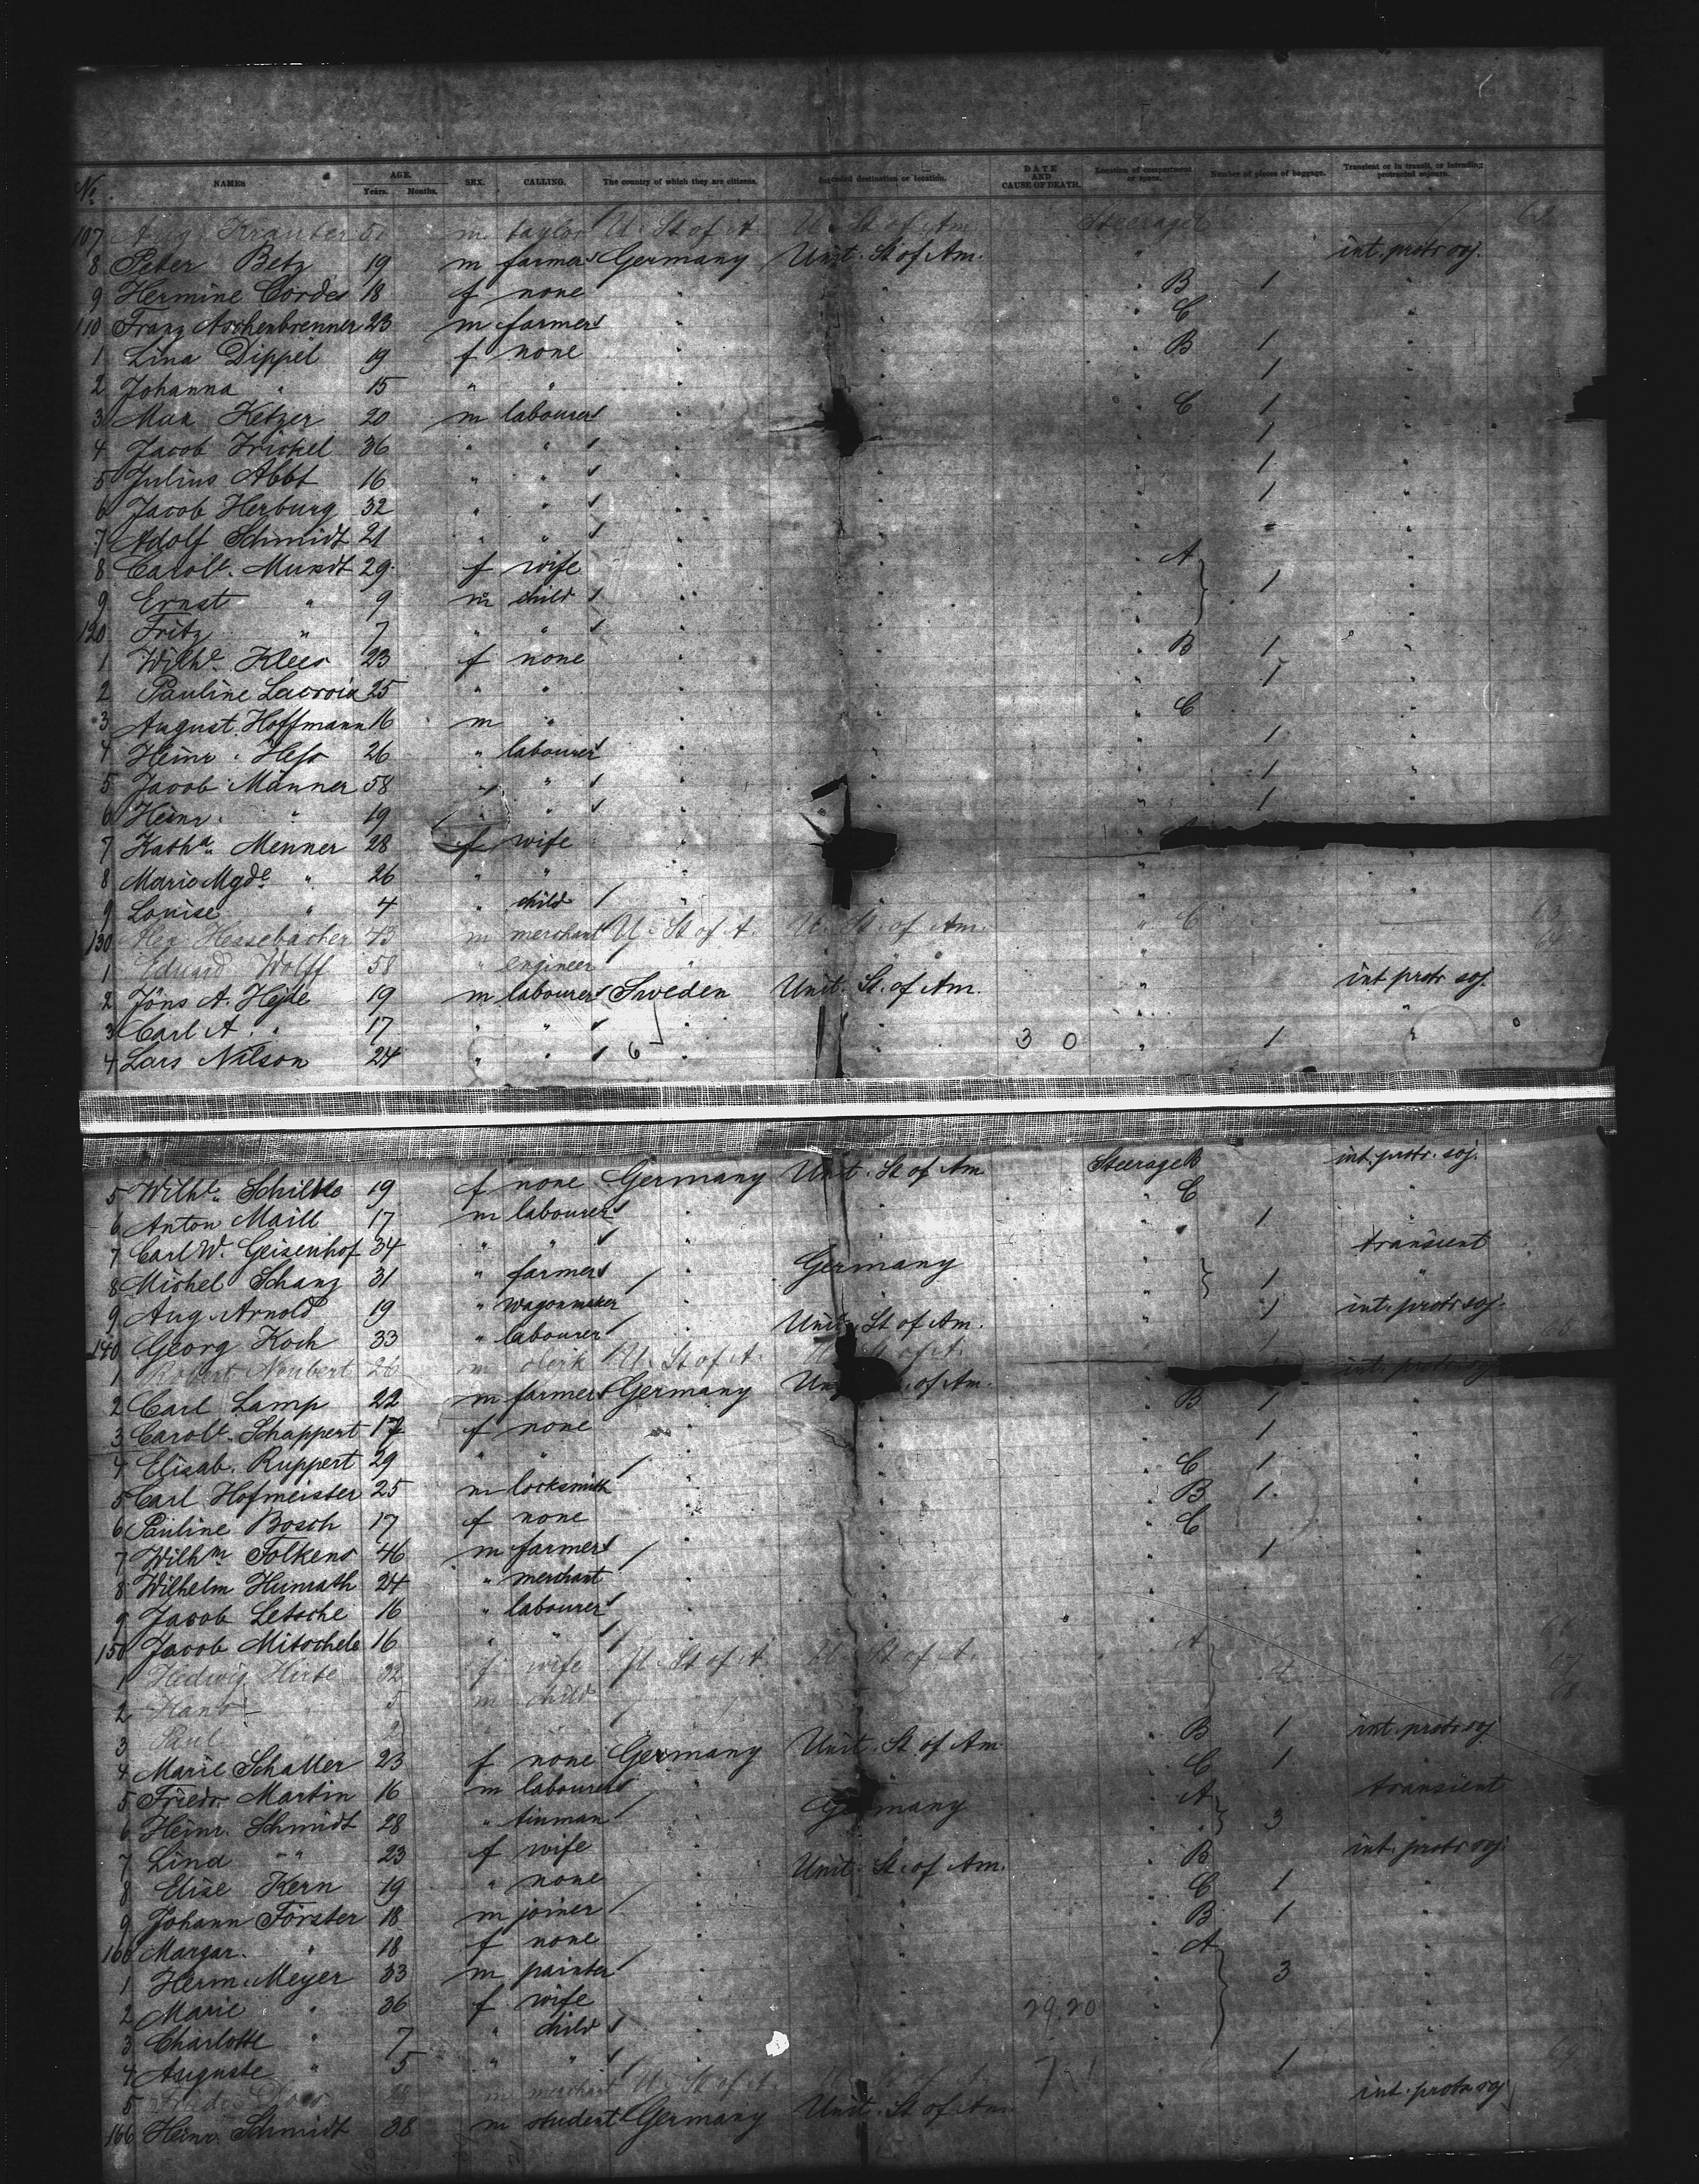 No. NAMES AGE. Years. Months. SEX. CALLING. The country of which they are citizens. Intended destination or location. DATE AND CAUSE OF DEATH. Location of compartment or space. Number of pieces of baggage. Transient or in transit, or intending protracted sojourn.
107 Aug. Krauter m taylor U. St of A. U. St of Am. Steerage 62
8 Peter Betz 19 m farmer Germany Unit. St of Am. " int. protr soj.
9 Hermine Cordes 18 f none " " " B 1 "
110 Franz Aschenbrenner 23 m farmer " " " C "
1 Lina Dippel 19 f none " " " B 1 "
2 Johanna " 15 " " " " " 1 "
3 Max Ketzer 20 m labourer " " " C 1 "
4 Jacob Frickel 36 " " " " " 1 "
5 Julius Abbt 16 " " " " " 1 "
6 Jacob Herburg 32 " " " " " 1 "
7 Adolf Schmidt 21 " " " " " "
8 Carole. Mundt 29 f wife " " " A 1 "
9 Ernst " 9 m child " " " "
120 Fritz " 7 " " " " " "
1 Wilhe. Klees 23 f none " " " B 1 "
2 Pauline Lacroix 25 " " " " " 1 "
3 August Hoffmann 16 m " " " " C "
4 Heinr. Hess 26 " labourer " " " 1 "
5 Jacob Männer 58 " " " " " 1 "
6 Heinr. " 19 " " " " " 1
7 Katha. Menner 28 f wife " "
8 Marie Mgde. " 26 " " " " " "
9 Louise " 4 " child " " " "
130 Alex Hessebacher 43 m merchant U. St of A. U. St. of Am. " C 63
1 Eduard Wolff 58 " engineer " " 64
2 Jöns A. Hejde 19 m labourer Sweden Unit. St. of Am. " int protr soj.
3 Carl A. " 17 " " " " " "
4 Lars Nilson 24 " " 6 " " 3 0 " 1 "
5 Wilhe. 19 f none Germany Unit. St of Am Steerage B int. protr. soj.
6 Anton Maill 17 m labourer " " " C "
7 Carl W. Geisenhof 34 " " " " " 1 "
8 Michel Schanz 31 " farmer " Germany " 1 transient
9 Aug. Arnold 19 " wagonmaker " " " "
140 Georg Koch 33 " labourer " Unit. St of Am. " 1 int. protr soj.
1 Robert Neubert 26 m clerk U. St of A. U. St of A. 1
2 Carl Lamp 22 m farmer Germany Un of Am. int. protr soj
3 Carole. Schappert 17 f none " " " B 1 "
4 Elisab. Ruppert 29 " " " " " 1 "
5 Carl Hofmeister 25 m locksmith " " " C 1 "
6 Pauline Bosch 17 f none " " " B 1 "
7 Wilhm Folkens 46 m farmer " " " C "
8 Wilhelm Heinrath 24 " merchant " " " 1 "
9 Jacob Letsche 16 " labourer " " " "
150 Jacob Mitschele 16 " " " " " "
1 Hedwig Hirte 32 f wife U. St of A. U. St of A. " A 4
2 Hans " 5 m child 67
3 Paul " 2 " " 68
4 Marie Schaller 23 f none Germany Unit. St of Am " B 1 int. protr soj
5 Friedr. Martin 16 m labourer " " " C 1 "
6 Heinr. Schmidt 28 " tinman " Germany " A 3 transient
7 Lina " 23 f wife " " " "
8 Elise Kern 19 " none " Unit. St. of Am. " B int. protr soj
9 Johann Förster 18 m joiner " " " C 1 "
160 Margar. " 18 f none " " " B 1 "
1 Herm. Meyer 33 m painter " " " A 3 "
2 Marie " 36 f wife " " " "
3 Charlotte " 7 " child " " 29.20 " "
4 Auguste " 5 " " " " " "
5 m merchant U. St of A. 1 69
166 Heinr. Schmidt 38 m student Germany Unit. St. of Am. int. protr soj